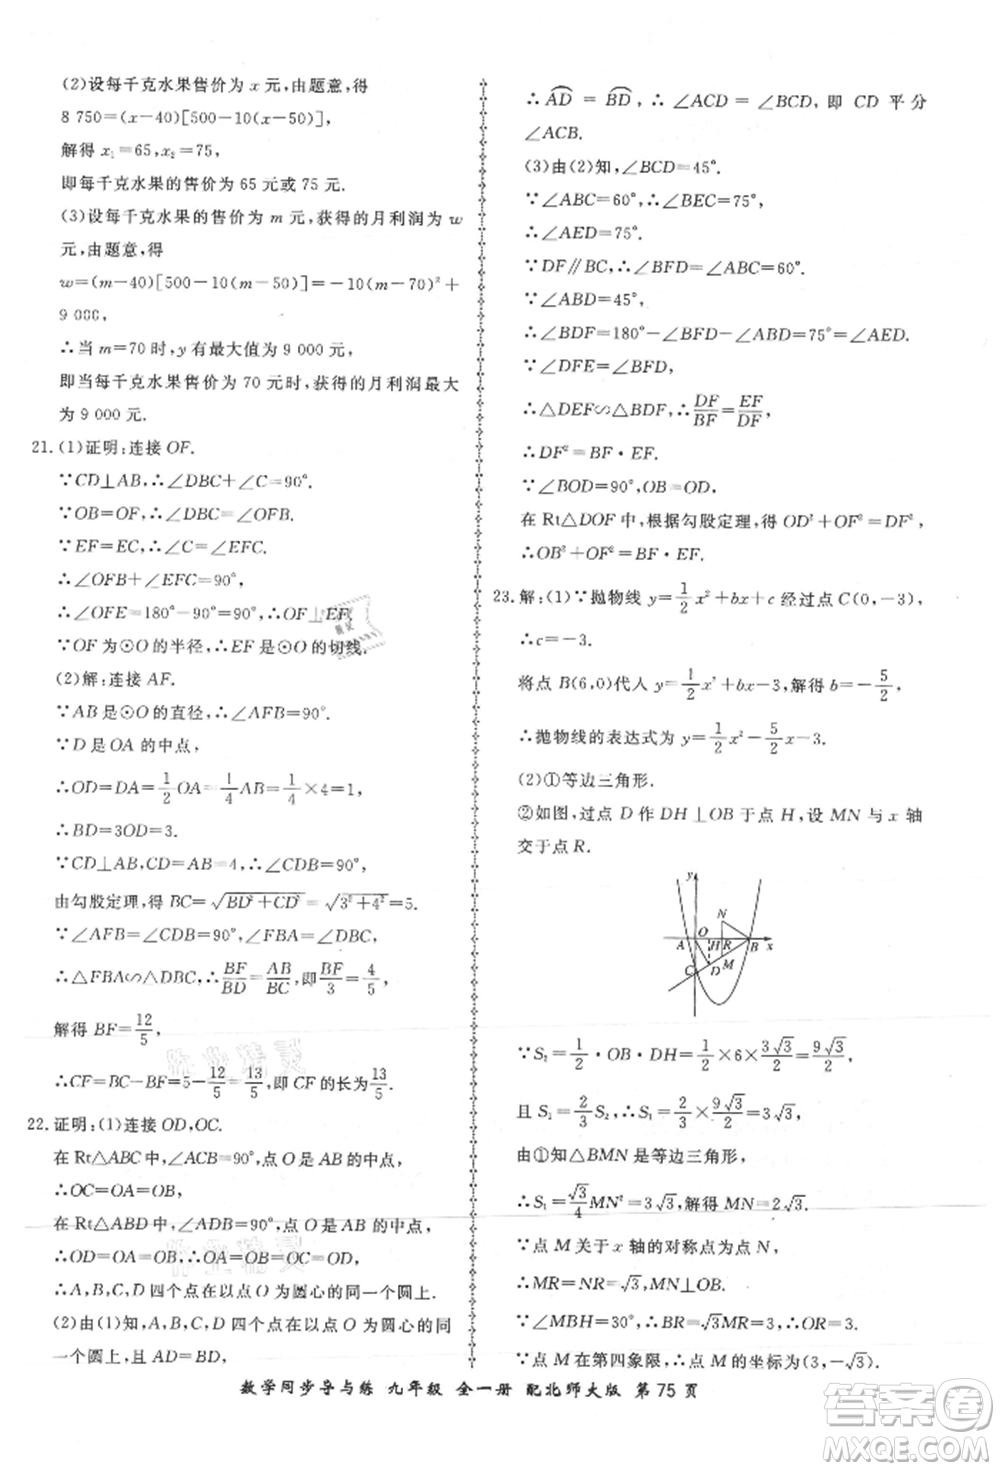 (2)设每千克水果售价为 x 元,由题意,得
8 750=(x-40)[500-10(x-50)],
解得 x₁=65,x₂=75,
即每千克水果的售价为 65 元或 75 元.
(3)设每千克水果的售价为 m 元,获得的月利润为 w
元,由题意,得
w=(m-40)[500-10(m-50)]=-10(m-70)²+
9 000,
∴当 m=70 时,y 有最大值为 9 000 元,
即当每千克水果售价为 70 元时,获得的月利润最大
为 9 000 元.
21.(1)证明:连接 OF.
∵CD⊥AB,∴∠DBC+∠C=90°.
∵OB=OF,∴∠DBC=∠OFB.
∵EF=EC,∴∠C=∠EFC.
∴∠OFB+∠EFC=90°.
∴∠OFE=180°-90°=90°,∴OF⊥EF.
∵OF 为⊙O 的半径,∴EF 是⊙O 的切线.
(2)解:连接 AF.
∵AB 是⊙O 的直径,∴∠AFB=90°.
∵D 是 OA 的中点,
∴OD=DA=1/2 OA=1/4 AB=1/4×4=1,
∴BD=3OD=3.
∵CD⊥AB,CD=AB=4,∴∠CDB=90°,
由勾股定理,得 BC=√(BD²+CD²)=√(3²+4²)=5.
∵∠AFB=∠CDB=90°,∠FBA=∠DBC,
∴△FBA∽△DBC,∴BF/BD=AB/BC,即BF/3=4/5,
解得 BF=12/5,
∴CF=BC-BF=5-12/5=13/5,即 CF 的长为13/5.
22.证明:(1)连接 OD,OC.
在 Rt△ABC 中,∠ACB=90°,点 O 是 AB 的中点,
∴OC=OA=OB,
在 Rt△ABD 中,∠ADB=90°,点 O 是 AB 的中点,
∴OD=OA=OB,∴OA=OB=OC=OD,
∴A,B,C,D 四个点在以点 O 为圆心的同一个圆上.
(2)由(1)知,A,B,C,D 四个点在以点 O 为圆心的同
一个圆上,且 AD=BD,
∴AD=BD,∴∠ACD=∠BCD,即 CD 平分
∠ACB.
(3)由(2)知,∠BCD=45°.
∵∠ABC=60°,∴∠BEC=75°,
∴∠AED=75°.
∵DF∥BC,∴∠BFD=∠ABC=60°.
∵∠ABD=45°,
∴∠BDF=180°-∠BFD-∠ABD=75°=∠AED.
∵∠DFE=∠BFD,
∴△DEF∽△BDF,∴DF/BF=EF/DF,
∴DF²=BF·EF.
∵∠BOD=90°,OB=OD,
在 Rt△DOF 中,根据勾股定理,得 OD²+OF²=DF²,
∴OB²+OF²=BF·EF.
23.解:(1)∵抛物线 y=1/2x²+bx+c 经过点 C(0,-3),
∴c=-3.
将点 B(6,0)代入 y=1/2x²+bx-3,解得 b=-5/2,
∴抛物线的表达式为 y=1/2x²-5/2x-3.
(2)①等边三角形.
②如图,过点 D 作 DH⊥OB 于点 H,设 MN 与 x 轴
交于点 R.
y
N
A O H R B x
M
C D
∵S₂=1/2·OB·DH=1/2×6×3√3/2=9√3/2,
且 S₁=2/3S₂,∴S₁=2/3×9√3/2=3√3,
由①知△BMN 是等边三角形,
∴S₁=√3/4MN²=3√3,解得 MN=2√3.
∵点 M 关于 x 轴的对称点为点 N,
∴MR=NR=√3,MN⊥OB.
∵∠MBH=30°,∴BR=√3MR=3,∴OR=3.
∵点 M 在第四象限,∴点 M 的坐标为(3,-√3).
数学同步导与练 九年级 全一册 配北师大版 第75页
答案圈
MXQE.COM